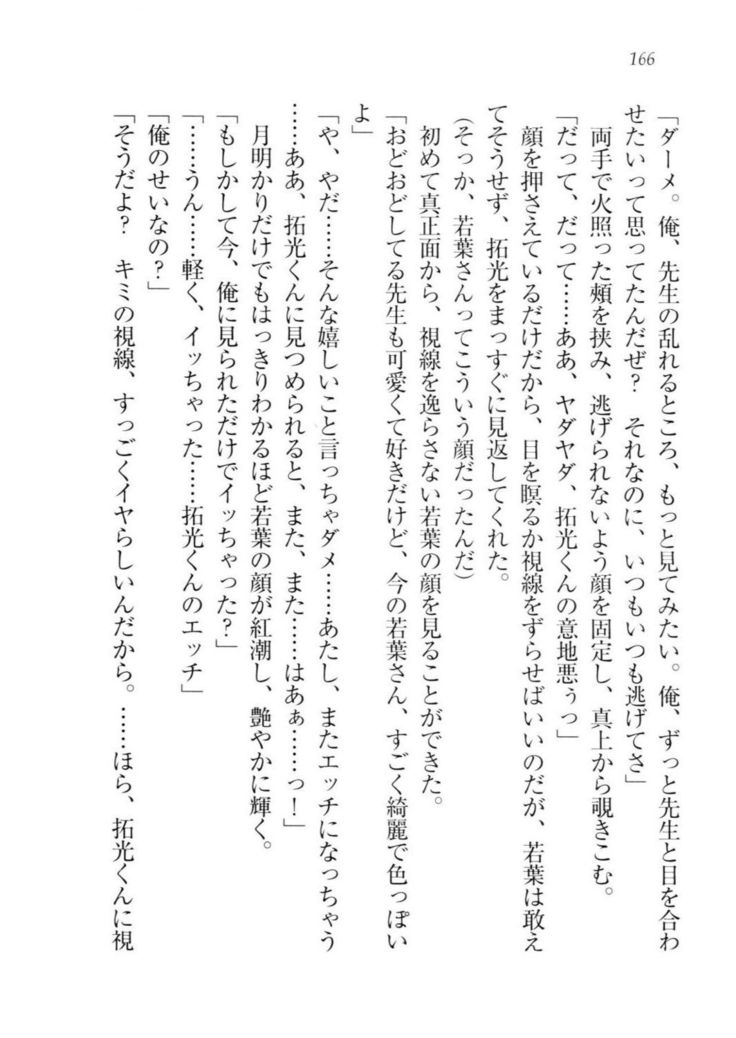 166
「ダーメ。俺、先生の乱れるところ、もっと見てみたい。俺、ずっと先生と目を合わ
せたいって思ってたんだぜ？　それなのに、いつもいつも逃げてさ」
両手で火照った頰を挟み、逃げられないよう顔を固定し、真上から覗きこむ。
「だって、だって……ああ、ヤダヤダ、拓光くんの意地悪ぅっ」
顔を押さえているだけだから、目を瞑るか視線をずらせばいいのだが、若葉は敢え
てそうせず、拓光をまっすぐに見返してくれた。
（そっか、若葉さんってこういう顔だったんだ）
初めて真正面から、視線を逸らさない若葉の顔を見ることができた。
「おどおどしてる先生も可愛くて好きだけど、今の若葉さん、すごく綺麗で色っぽい
よ」
「や、やだ……そんな嬉しいこと言っちゃダメ……あたし、またエッチになっちゃう
……ああ、拓光くんに見つめられると、また、また……はあぁ……っ！」
月明かりだけでもはっきりわかるほど若葉の顔が紅潮し、艶やかに輝く。
「もしかして今、俺に見られただけでイッちゃった？」
「……うん……軽く、イッちゃった……拓光くんのエッチ」
「俺のせいなの？」
「そうだよ？　キミの視線、すっごくイヤらしいんだから。……ほら、拓光くんに視